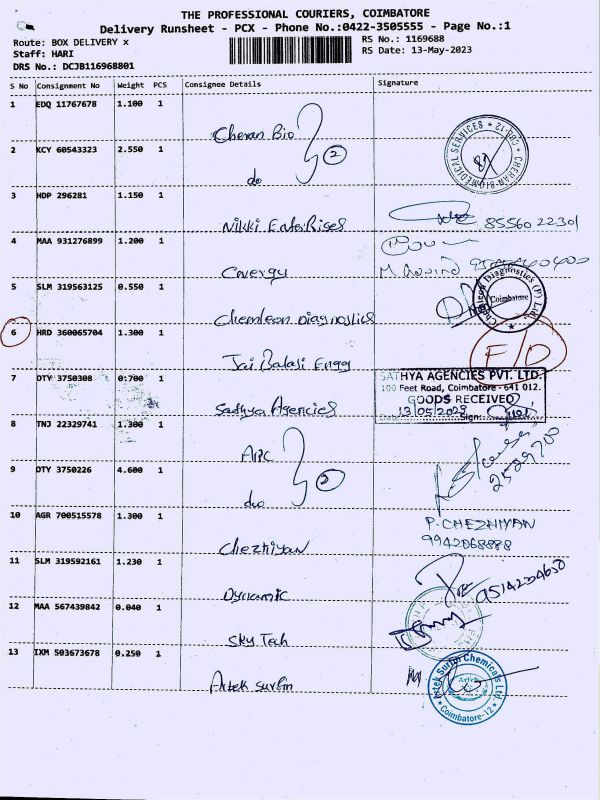 THE PROFESSIONAL COURIERS, COIMBATORE
Delivery Runsheet - PCX - Phone No.:0422-3505555 - Page No.:1
Route: BOX DELIVERY x
RS No.: 1169688
Staff: HARI
RS Date: 13-May-2023
DRS No.: DCJB116968801
S No Consignment No Weight PCS Consignee Details Signature
1 EDQ 11767678 1.100 1
Cheran Bio
2
2 KCY 60543323 2.550 1
do
CHERAN BIOMEDICAL SERVICES * COB-12 *
3 HDP 296281 1.150 1
Nikki Enterises
85560 22301
4 MAA 931276899 1.200 1
Covergy
5 SLM 319563125 0.550 1
Chemleon Diagnostics
Chemleon Diagnostics (P) Ltd.
Coimbatore
6 HRD 360065704 1.300 1
Jai Balaji Engg
F/D
7 OTY 3750308 0.700 1
Sadhya Agencies
SATHYA AGENCIES PVT. LTD.
100 Feet Road, Coimbatore - 641 012.
GOODS RECEIVED
Date: 13/05/2023 Sign:
8 TNJ 22329741 1.300 1
APC
2
9 OTY 3750226 4.600 1
do
10 AGR 700515578 1.300 1
Chezhiyan
P. CHEZHIYAN
9942068888
11 SLM 319592161 1.230 1
Dynamic
9514234630
12 MAA 567439842 0.040 1
Sky Tech
13 IXM 503673678 0.250 1
Artek surfin
Artek Surfin Chemicals Ltd
Artek
Coimbatore-12